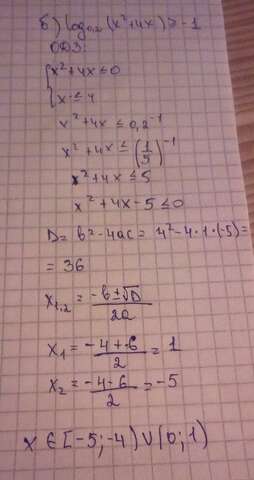 б) log₀,₂(x²+4x) ≥ -1
ОДЗ:
{x²+4x ≤ 0
{x ≤ 4
x²+4x ≤ 0,2⁻¹
x²+4x ≤ (1/5)⁻¹
x²+4x ≤ 5
x²+4x-5 ≤ 0
D = b²-4ac = 4²-4·1·(-5) =
= 36
x₁,₂ = (-b±√D)/2a
x₁ = (-4+6)/2 = 1
x₂ = (-4-6)/2 = -5
x ∈ [-5;-4) ∪ (0;1)